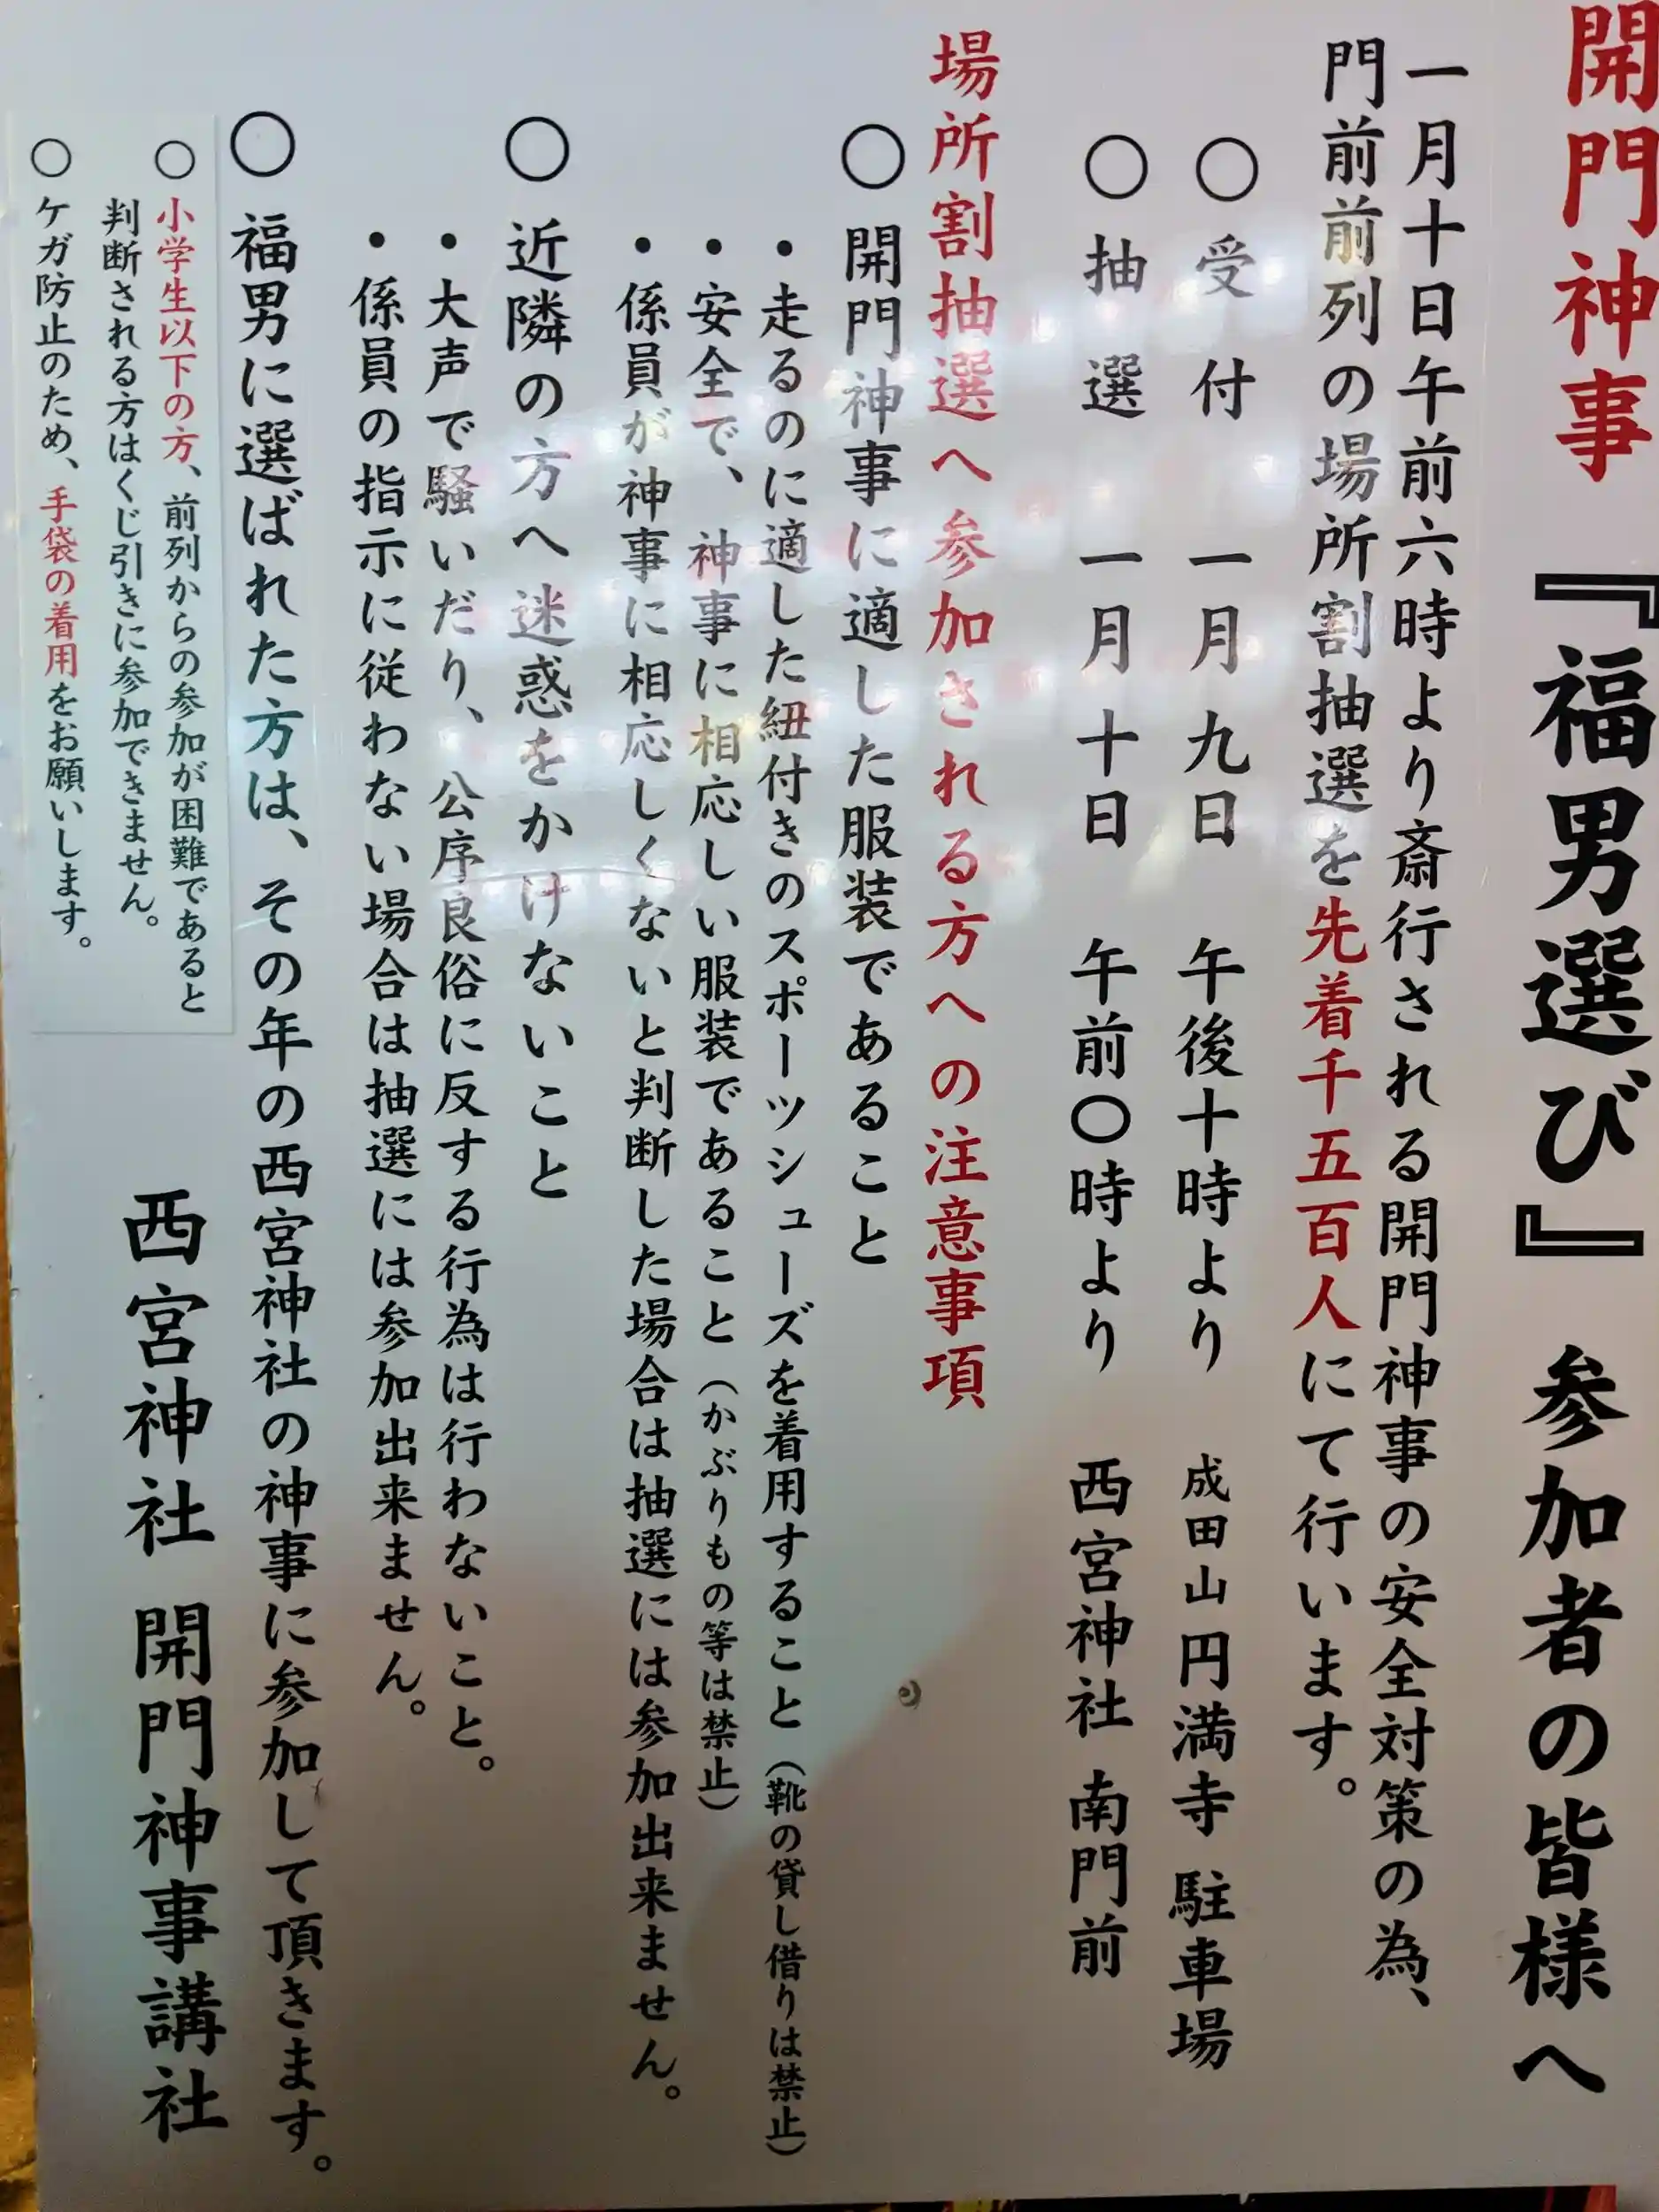 開門神事 『福男選び』 参加者の皆様へ
一月十日午前六時より斎行される開門神事の安全対策の為、
門前前列の場所割抽選を先着千五百人にて行います。
○ 受付 一月九日 午後十時より 成田山円満寺 駐車場
○ 抽選 一月十日 午前〇時より 西宮神社 南門前
場所割抽選へ参加される方への注意事項
○ 開門神事に適した服装であること
・走るのに適した紐付きのスポーツシューズを着用すること（靴の貸し借りは禁止）
・安全で、神事に相応しい服装であること（かぶりもの等は禁止）
・係員が神事に相応しくないと判断した場合は抽選には参加出来ません。
○ 近隣の方へ迷惑をかけないこと
・大声で騒いだり、公序良俗に反する行為は行わないこと。
・係員の指示に従わない場合は抽選には参加出来ません。
○ 福男に選ばれた方は、その年の西宮神社の神事に参加して頂きます。
○ 小学生以下の方、前列からの参加が困難であると
判断される方はくじ引きに参加できません。
○ ケガ防止のため、手袋の着用をお願いします。
西宮神社 開門神事講社